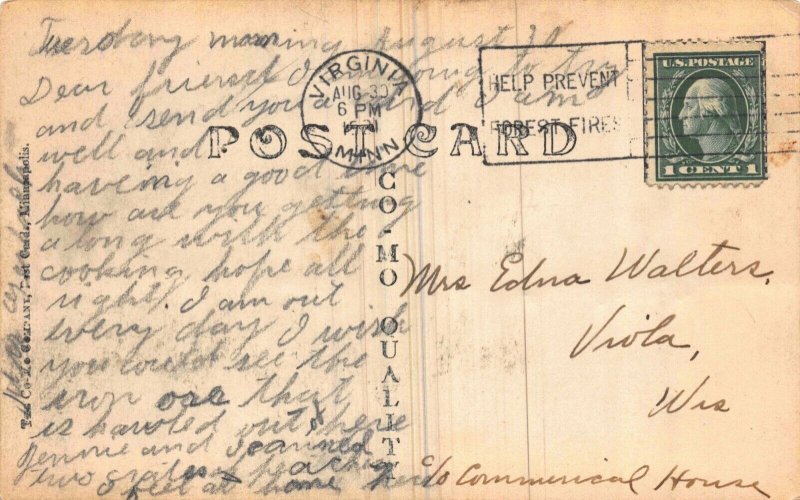 Tuesday morning August 30
Dear friend I am going to try
and send you a card I am
well and
having a good time
how are you getting
along with the
cooking hope all
right. I am out
every day I wish
you could see the
iron ore that
is hauled out here
Jennie and I canned
two crates of peaches
I feel at home
VIRGINIA
AUG 30
6 PM
MINN.
HELP PREVENT
FOREST FIRES
U.S. POSTAGE
1 CENT 1
POST CARD
CO-MO QUALITY
THE CO-MO COMPANY, Post Cards, Minneapolis.
Mrs Edna Walters,
Viola,
Wis
c/o Commerical House